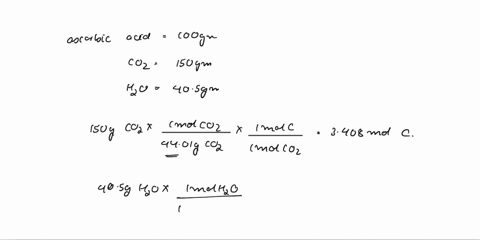 ascorbic acid = 100gm
CO2 = 150gm
H2O = 40.5gm
150g CO2 × 1mol CO2 / 44.01g CO2 × 1mol C / 1mol CO2 = 3.408 mol C.
40.5g H2O × 1mol H2O / 1